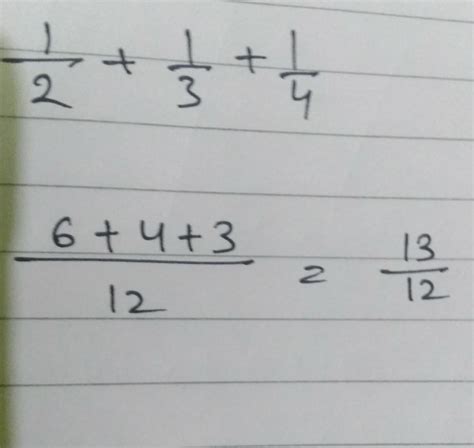 1/2 + 1/3 + 1/4
6+4+3/12 = 13/12